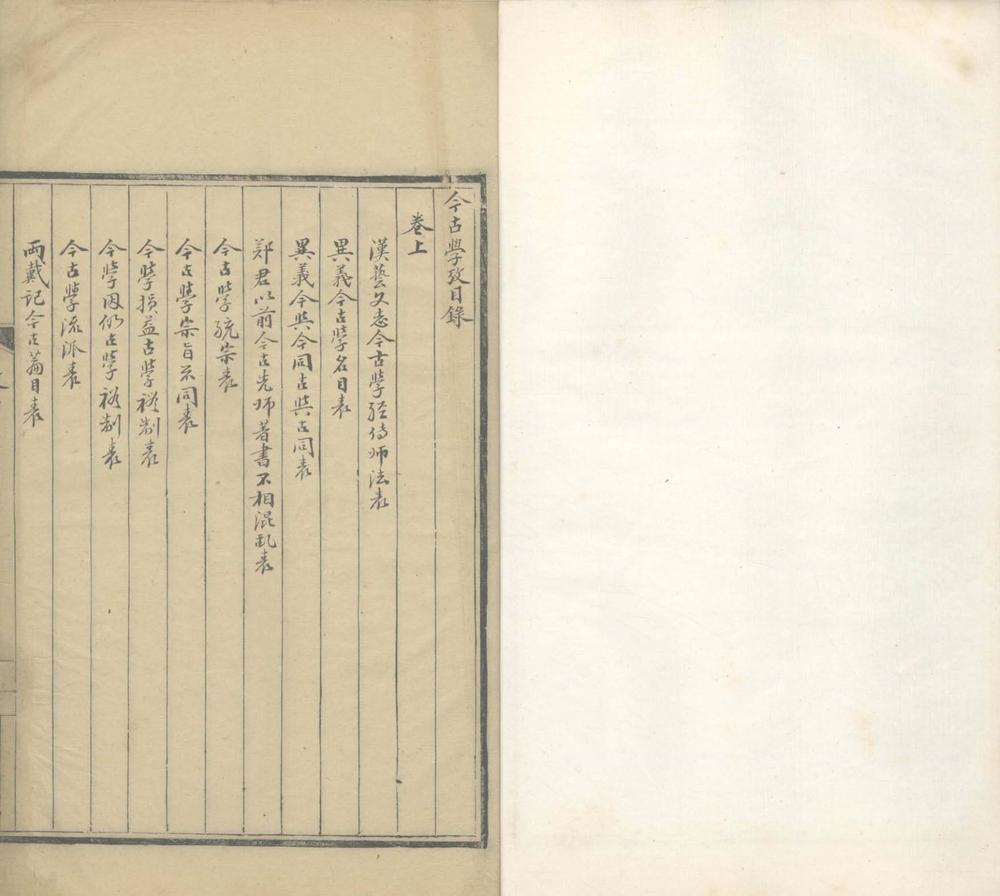 今古學攷目錄
卷上
漢藝文志今古學經傳師法表
異義今古學名目表
異義今與今同古與古同表
郑君以前今古先师著書不相混亂表
今古学統宗表
今古學宗旨不同表
今學損益古學禮制表
今學因仍古學禮制表
今古學流派表
兩戴記今古篇目表